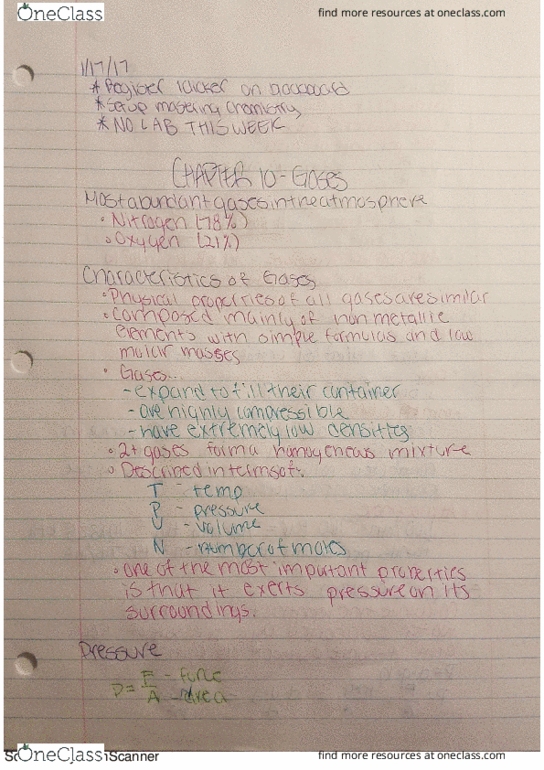 OneClass
find more resources at oneclass.com
1/17/17
* Register iclicker on
* Setup mastering chemistry
* NO LAB THIS WEEK
CHAPTER 10 - GASES
Most abundant gases in the atmosphere
• Nitrogen (78%)
• Oxygen (21%)
Characteristics of Gases
• Physical properties of all gases are similar
• Composed mainly of non metallic
elements with simple formulas and low
molar masses
• Gases...
- expand to fill their container
- are highly compressible
- have extremely low densities
• 2+ gases form a homogeneous mixture
• Described in terms of:
T - temp
P - pressure
V - volume
N - number of moles
• one of the most important properties
is that it exerts pressure on its
surroundings.
Pressure
P = F - force
A - area
OneClass
Scanner
find more resources at oneclass.com